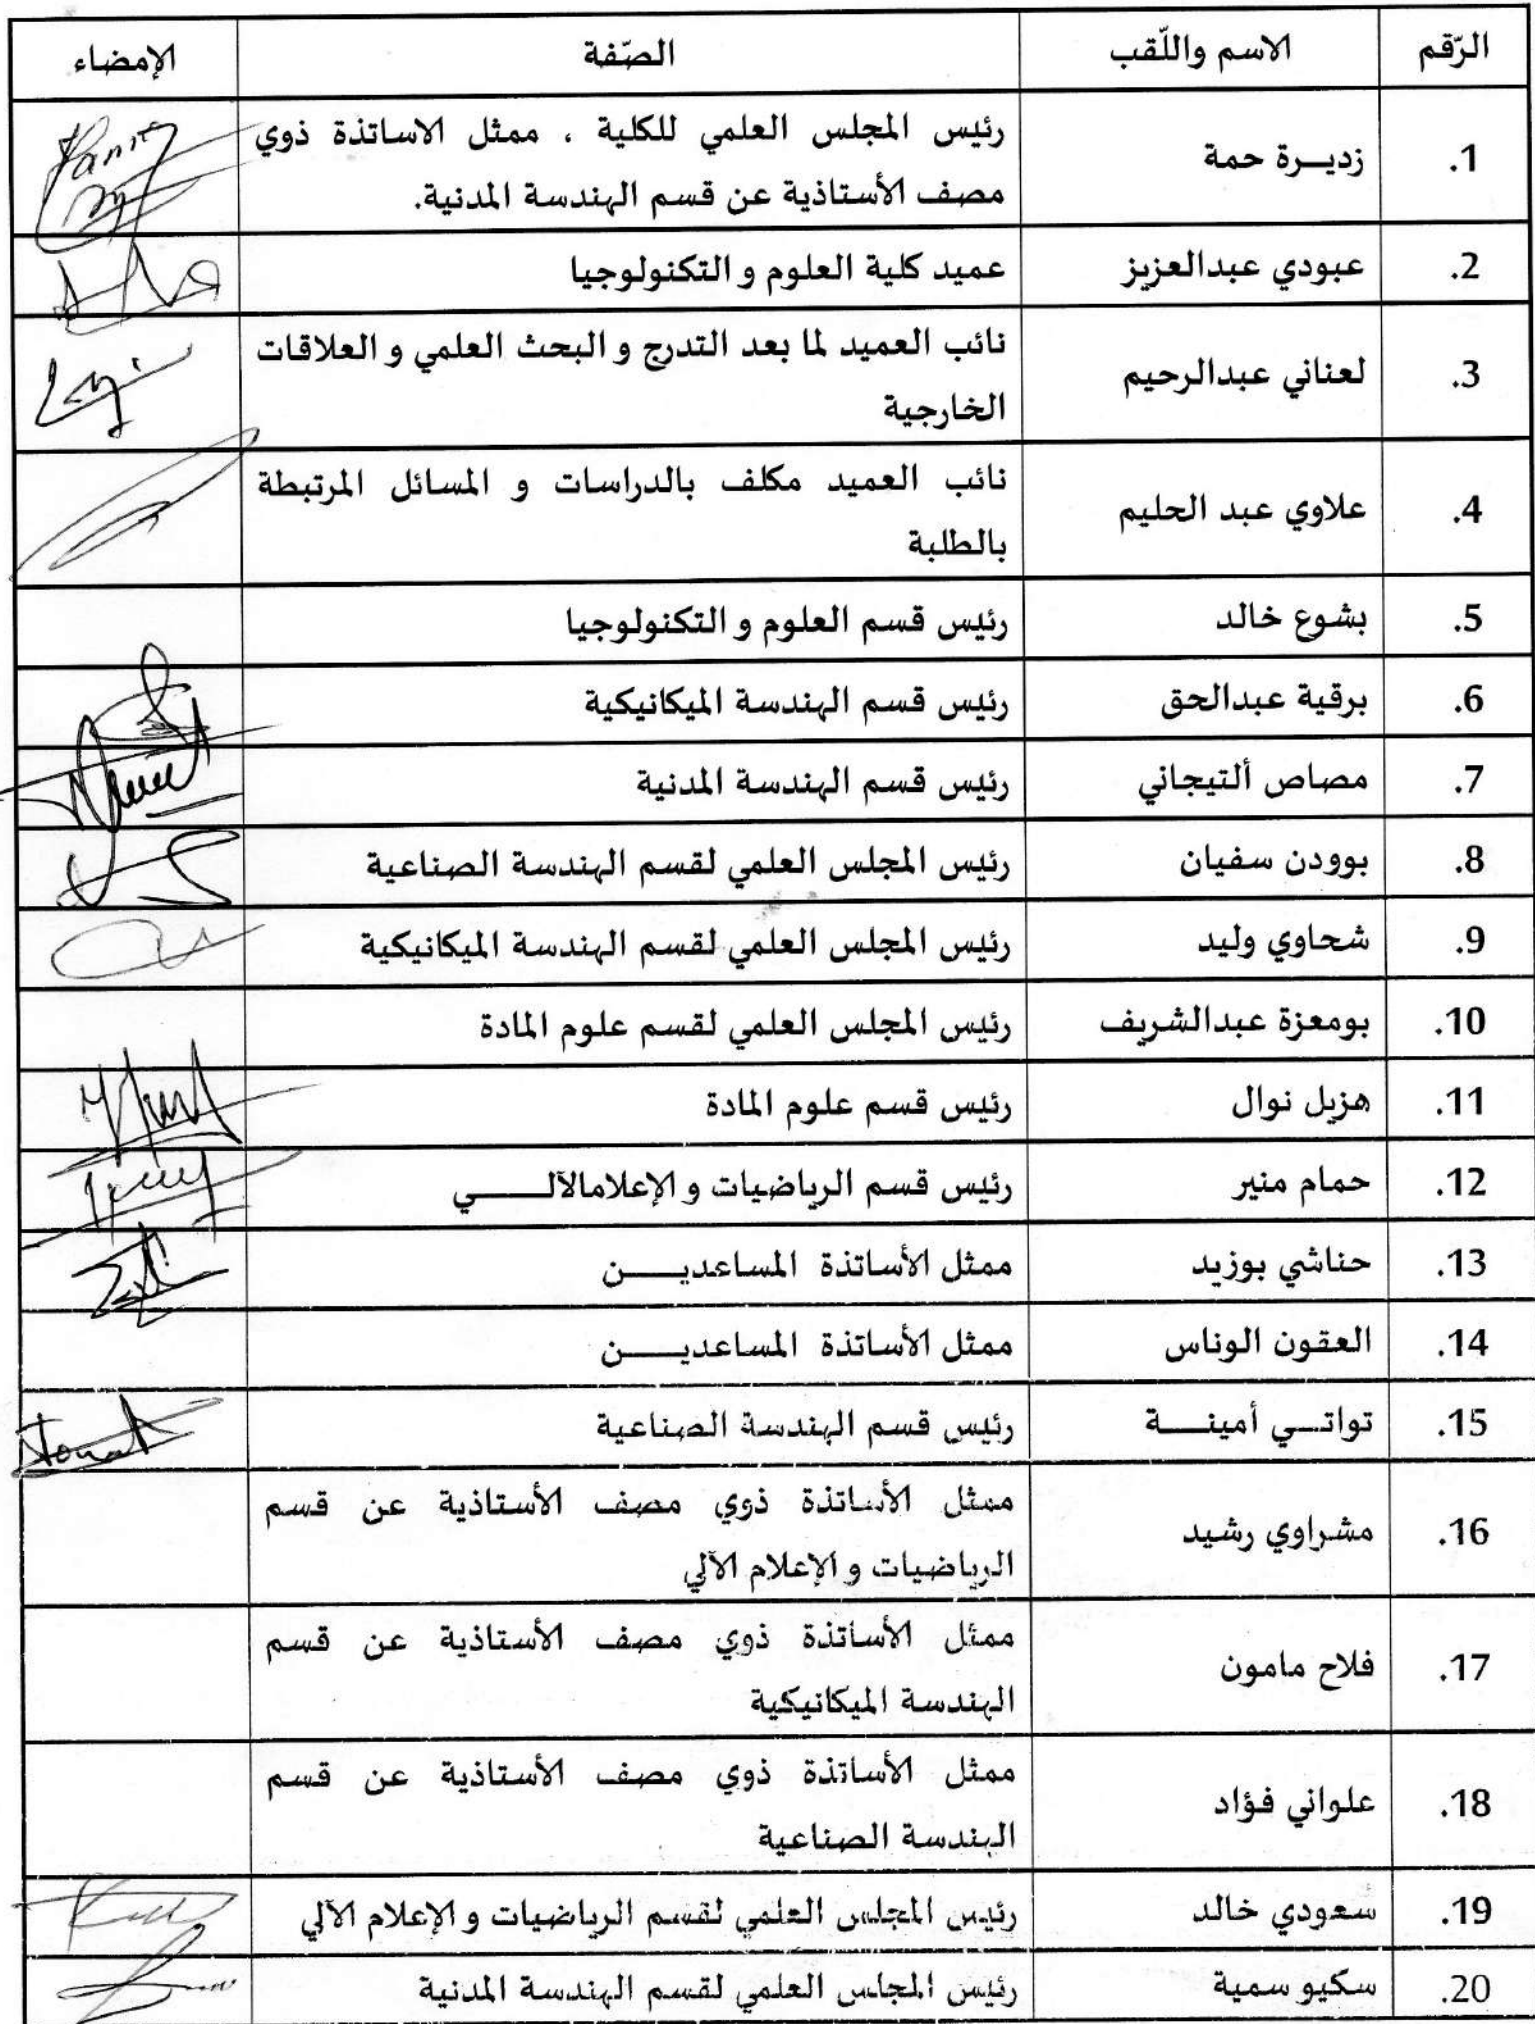 الرّقم الاسم واللّقب الصّفة الإمضاء
1. زديــرة حمة رئيس المجلس العلمي للكلية ، ممثل الاساتذة ذوي
مصف الأستاذية عن قسم الهندسة المدنية.
2. عبودي عبدالعزيز عميد كلية العلوم و التكنولوجيا
3. لعناني عبدالرحيم نائب العميد لما بعد التدرج و البحث العلمي و العلاقات
الخارجية
4. علاوي عبد الحليم نائب العميد مكلف بالدراسات و المسائل المرتبطة
بالطلبة
5. بشوع خالد رئيس قسم العلوم و التكنولوجيا
6. برقية عبدالحق رئيس قسم الهندسة الميكانيكية
7. مصاص ألتيجاني رئيس قسم الهندسة المدنية
8. بوودن سفيان رئيس المجلس العلمي لقسم الهندسة الصناعية
9. شحاوي وليد رئيس المجلس العلمي لقسم الهندسة الميكانيكية
10. بومعزة عبدالشريف رئيس المجلس العلمي لقسم علوم المادة
11. هزيل نوال رئيس قسم علوم المادة
12. حمام منير رئيس قسم الرياضيات و الإعلامالآلــــــي
13. حناشي بوزيد ممثل الأساتذة المساعديـــــن
14. العقون الوناس ممثل الأساتذة المساعديـــــن
15. تواتــي أمينــــة رئيس قسم الهندسة الصناعية
16. مشراوي رشيد ممثل الأساتذة ذوي مصف الأستاذية عن قسم
الرياضيات و الإعلام الآلي
17. فلاح مامون ممثل الأساتذة ذوي مصف الأستاذية عن قسم
الهندسة الميكانيكية
18. علواني فؤاد ممثل الأساتذة ذوي مصف الأستاذية عن قسم
الهندسة الصناعية
19. سعودي خالد رئيس المجلس العلمي لقسم الرياضيات و الإعلام الآلي
20. سكيو سمية رئيس المجلس العلمي لقسم الهندسة المدنية